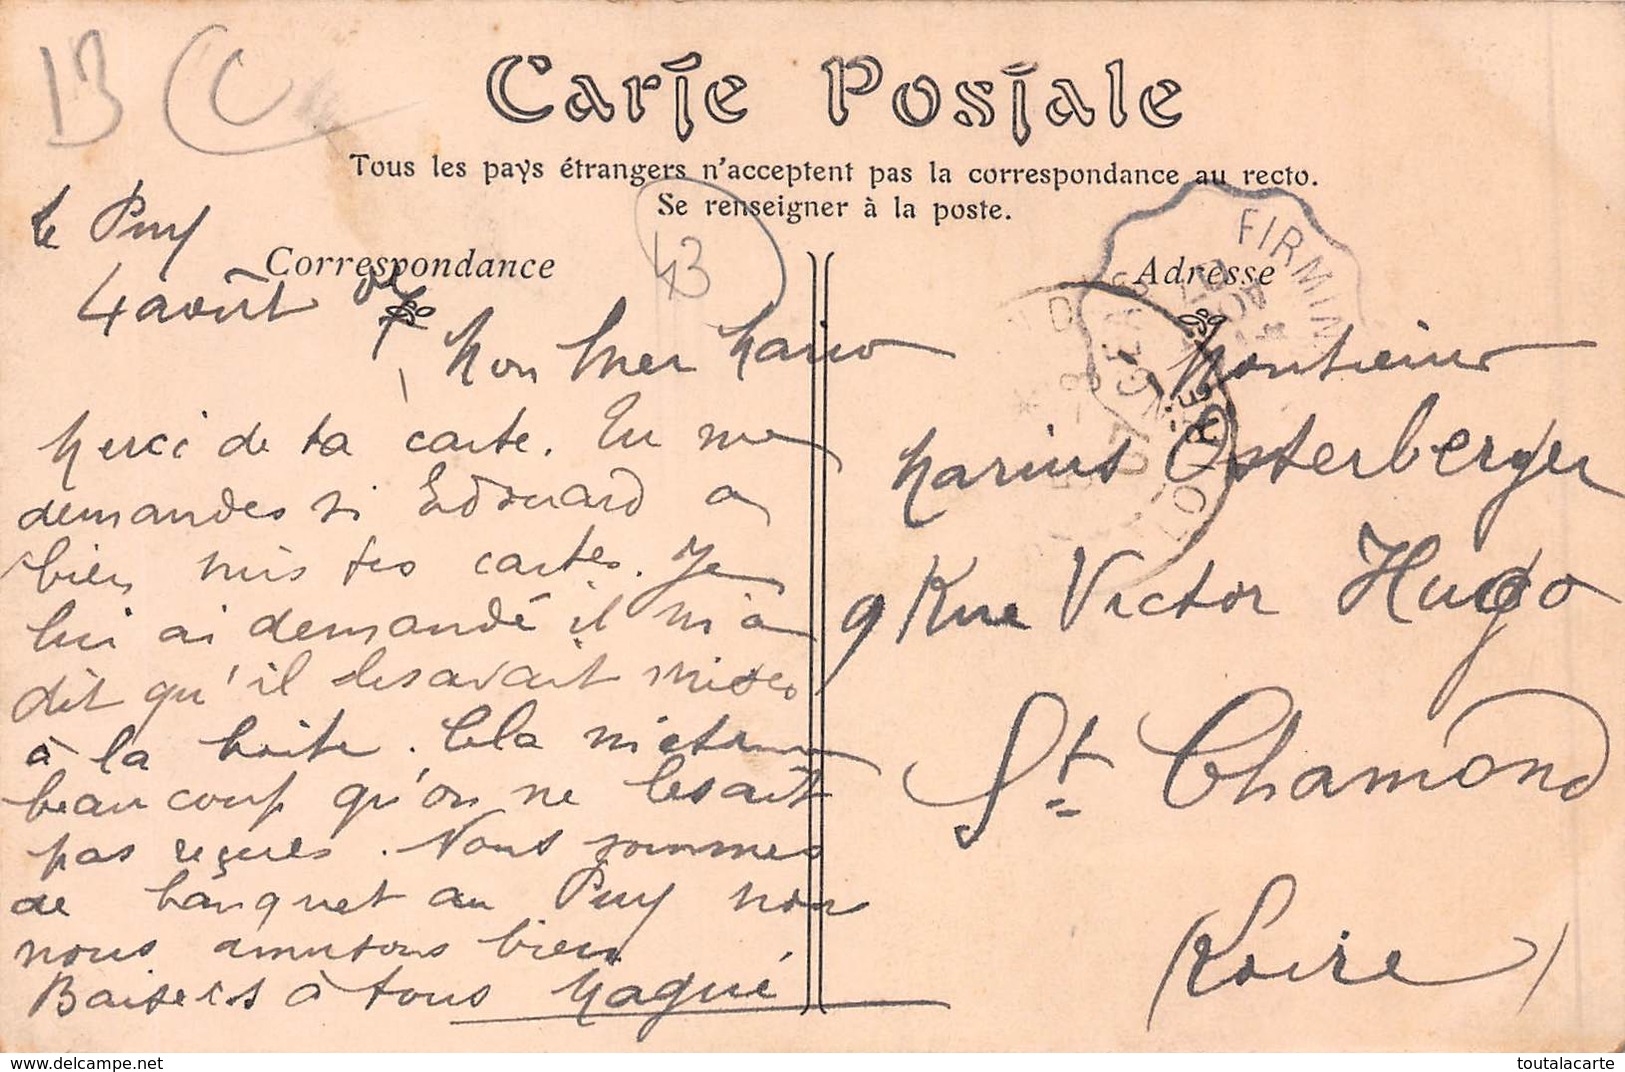 13
Carte Postale
Tous les pays étrangers n'acceptent pas la correspondance au recto.
Se renseigner à la poste.
le Puy
Correspondance
43
Adresse
FIRMIN
4 août
Mon cher Mario
Merci de ta carte. Tu me
demandes si Edouard a
bien mis tes cartes. Je
lui ai demandé il m'a
dit qu'il les avait mises
à la boite. Cela m'étonne
beaucoup qu'on ne les ait
pas reçues. Nous sommes
de banquet au Puy nou
nous amusons bien
Baisers à tous Magné
Monsieur
Marius Osterberger
9 Rue Victor Hugo
St Chamond
(Loire)
https://www.delcampe.net
toutalacarte